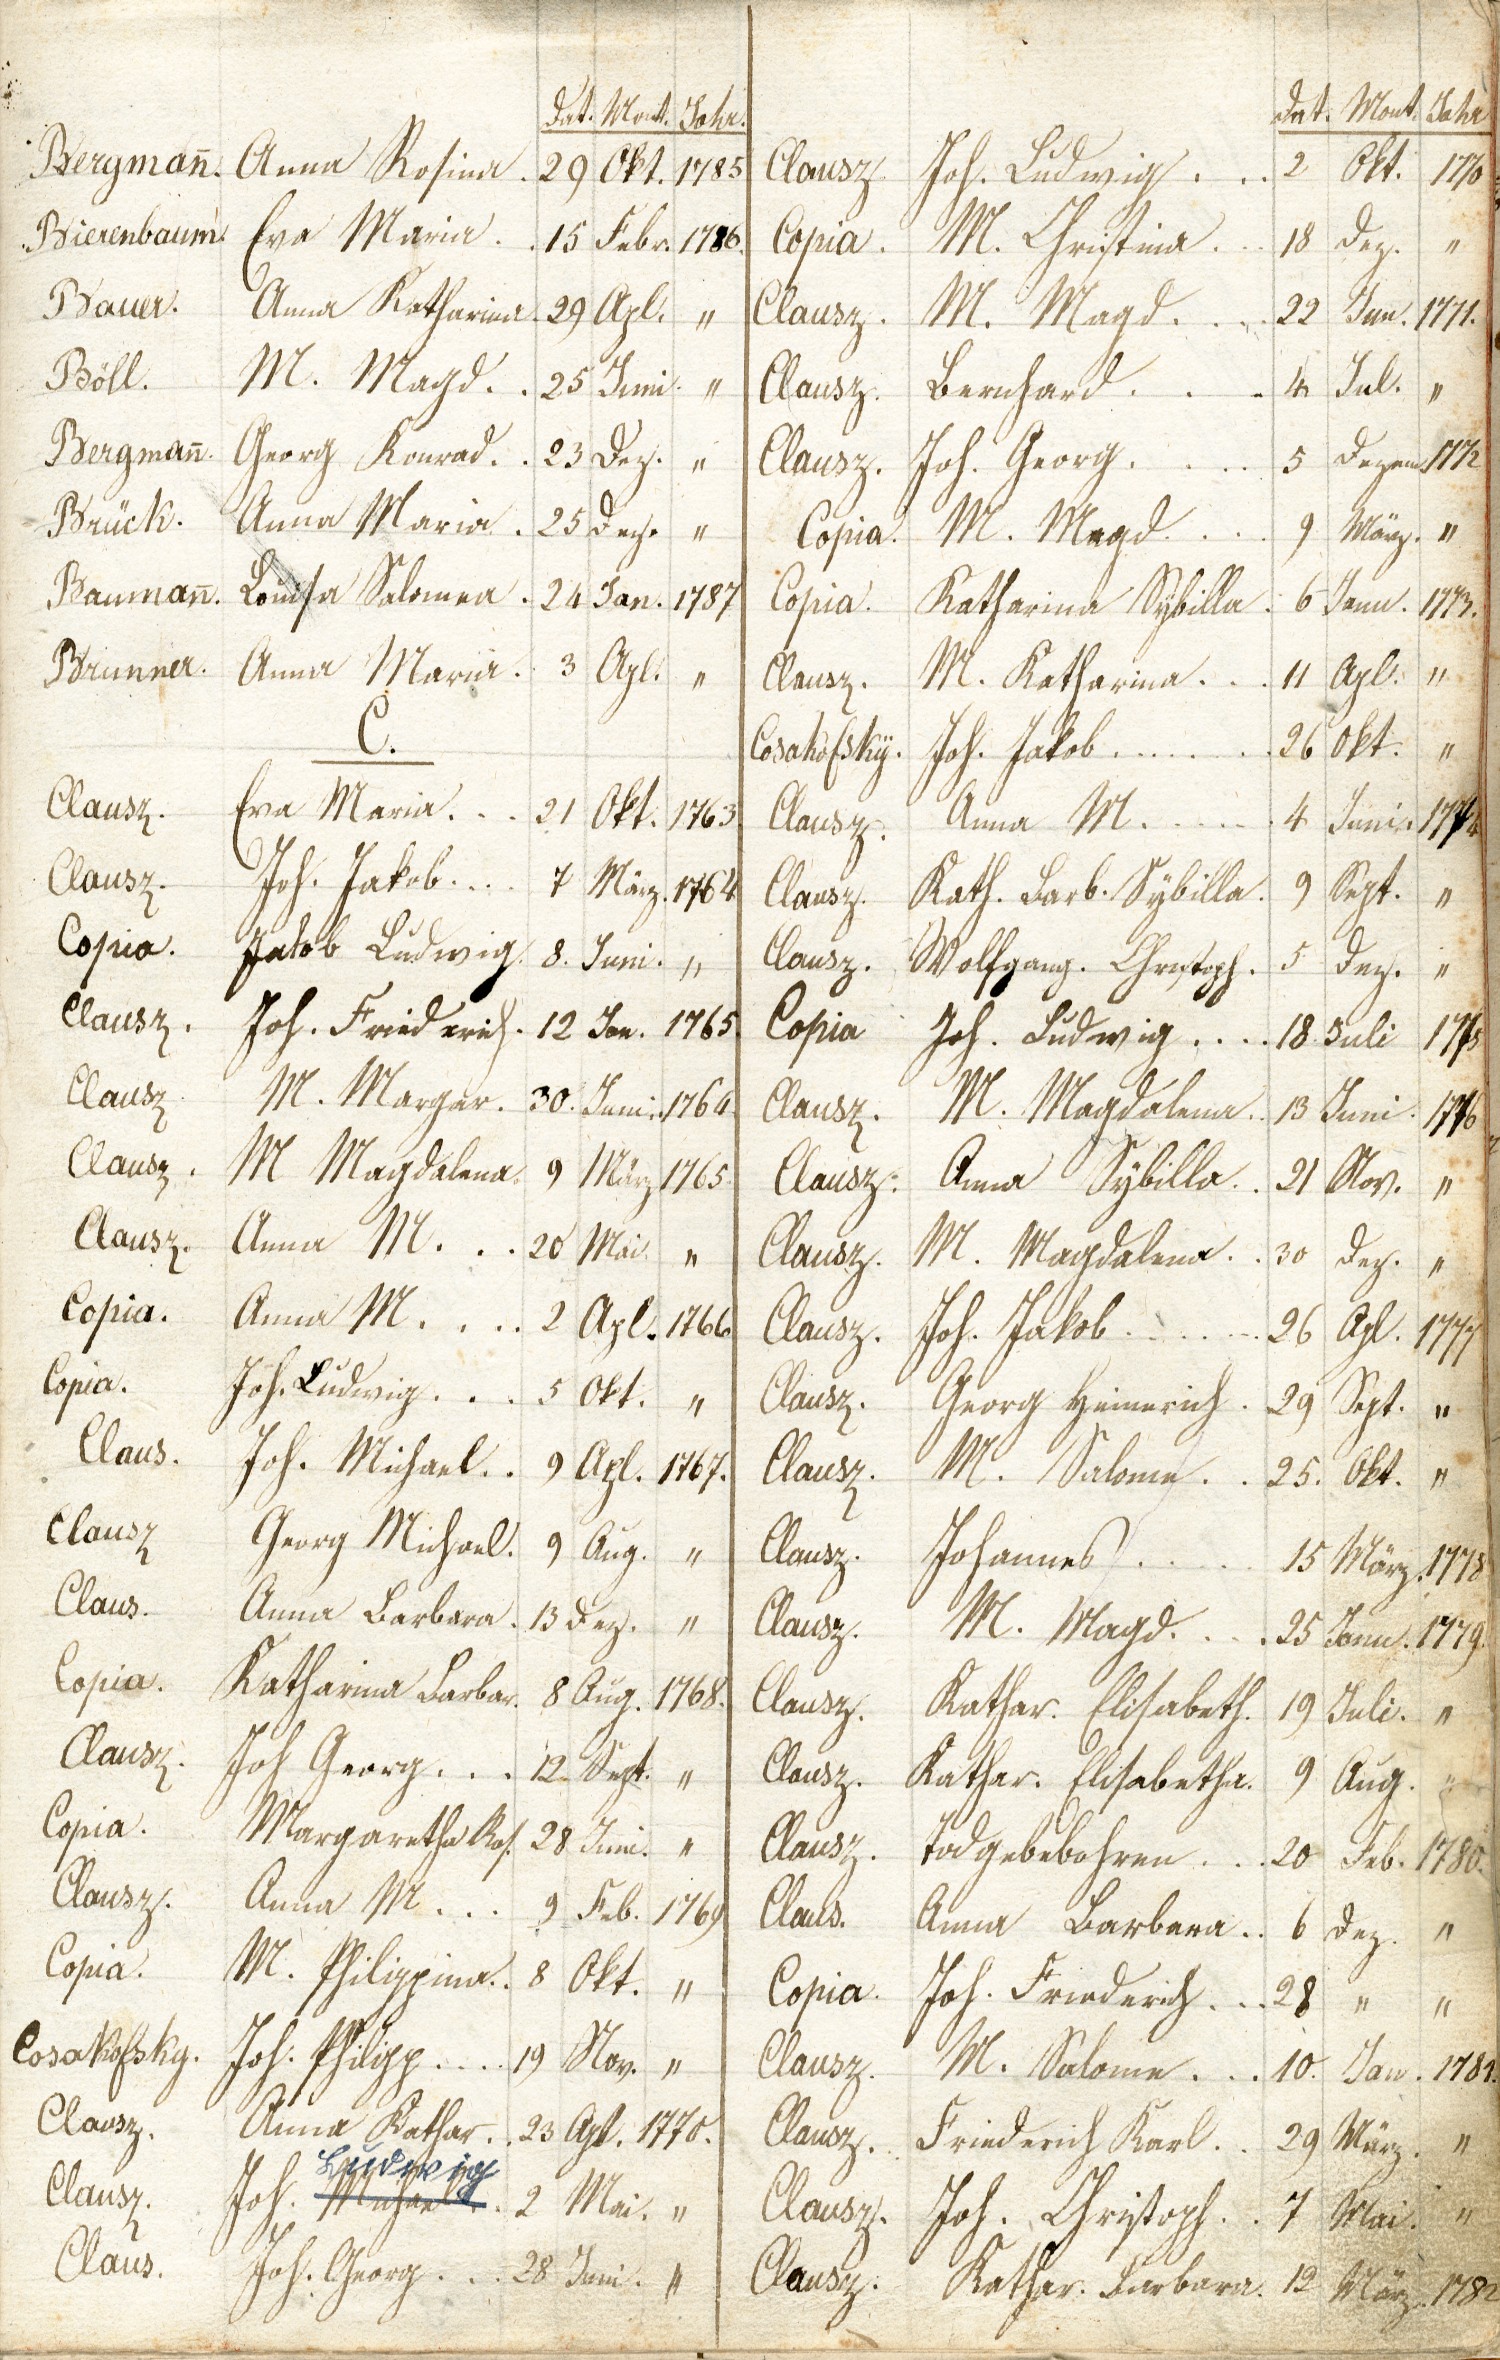 Dat. Mont. Jahr.
Bergmañ. Anna Rosina. 29 Okt. 1785
Bierenbaum. Eva Maria. . 15 Febr. 1786.
Bauer. Anna Katharina. 29 Apl. "
Böll. M. Magd. . 25 Juni. "
Bergmañ. Georg Konrad. . 23 Dez. "
Brück. Anna Maria. . 25 Dez. "
Baumañ. Louisa Salomea. 24 Jan. 1787
Brunner. Anna Maria. 3 Apl. "
C.
Clausz. Eva Maria. . . 21 Okt. 1763.
Clausz. Joh. Jakob. . . . 7 März. 1764
Copia. Jakob Ludwig. 8. Juni. "
Clausz. Joh. Friederich. 12 Jan. 1765.
Clausz M. Margar. 30. Juni. 1764.
Clausz. M Magdalena. 9 März 1765.
Clausz. Anna M. . . 20 Mai. "
Copia. Anna M. . . . 2 Apl. 1766
Copia. Joh. Ludwig. . . 5 Okt. "
Claus. Joh. Michael. . 9 Apl. 1767.
Clausz Georg Michael. 9 Aug. "
Claus. Anna Barbara. 13 Dez. "
Copia. Katharina Barbar. 8 Aug. 1768.
Clausz. Joh Georg. . . 12 Sept. "
Copia. Margaretha Ros. 28 Juni. "
Clausz. Anna M. . . 9 Feb. 1769
Copia. M. Philippina. . 8 Okt. "
Cosakofsky. Joh. Philipp. . . . 19 Nov. "
Clausz. Anna Kathar. . 23 Apl. 1770.
Ludwig
Clausz. Joh. Michael. . 2 Mai. "
Claus. Joh. Georg. . . 28 Juni. "
Dat. Mont. Jahr
Clausz Joh. Ludwig. . . 2 Okt. 1770
Copia. M. Christina. . . 18 Dez. "
Clausz. M. Magd. . . . 22 Jan. 1771.
Clausz. Bernhard. . . 4 Jul. "
Clausz. Joh. Georg. . . . 5 Dezem 1772
Copia. M. Magd. . . . 9 März. "
Copia. Katharina Sÿbilla. 6 Jann. 1773.
Clausz. M. Katharina. . . 11 Apl. "
Cosakofskÿ. Joh. Jakob. . . . . . 26 Okt. "
Clausz. Anna M. . . . . . 4 Juni. 1774
Clausz. Kath. Barb. Sÿbilla. 9 Sept. "
Clausz. Wolfgang. Christoph. 5 Dez. "
Copia Joh. Ludwig. . . . 18 Juli 1775
Clausz. M. Magdalena. . 13 Juni. 1776
Clausz. Anna Sÿbilla. . 21 Nov. "
Clausz. M. Magdalena. . 30 Dez. "
Clausz. Joh. Jakob. . . . . . 26 Apl. 1777
Clausz. Georg Heinerich. 29 Sept. "
Clausz. M. Salome. . 25. Okt. "
Clausz. Johannes. . . . . 15 März. 1778
Clausz. M. Magd. . . . 25 Jann. 1779.
Clausz. Kathar. Elisabeth. 19 Juli. "
Clausz. Kathar. Elisabetha. 9 Aug. "
Clausz. Todgebebohren. . . 20 Feb. 1780.
Claus. Anna Barbara. . 6 Dez. "
Copia. Joh. Friederich. . . 28 " "
Clausz. M. Salome. . . 10. Jan. 1781.
Clausz. Friederich Karl. . 29 März. "
Clausz. Joh. Christoph. . 7 Mai. "
Clausz. Kathar. Barbara. 12 März. 1782